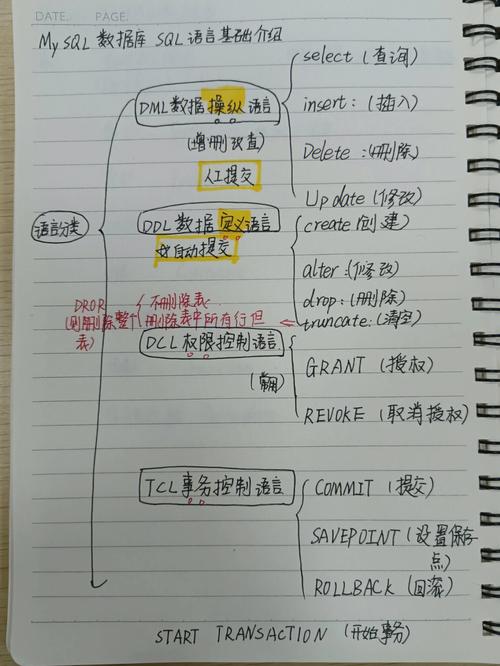 DATE. PAGE.
MySQL 数据库 SQL 语言基础介绍
语言分类
DML数据操纵语言
(增删改查)
人工提交
select (查询)
insert: (插入)
Delete : (删除)
Update (修改)
DDL 数据定义语言
自动提交
create (创建)
alter: (修改)
drop: (删除)
truncate: (清空)
DROP
(则删除整个表)
不删除表
删除表中所有行但
DCL 权限控制语言
GRANT (授权)
REVOKE (取消授权)
TCL 事务控制语言
COMMIT (提交)
SAVEPOINT (设置保存点)
ROLLBACK (回滚)
START TRANSACTION (开始事务)